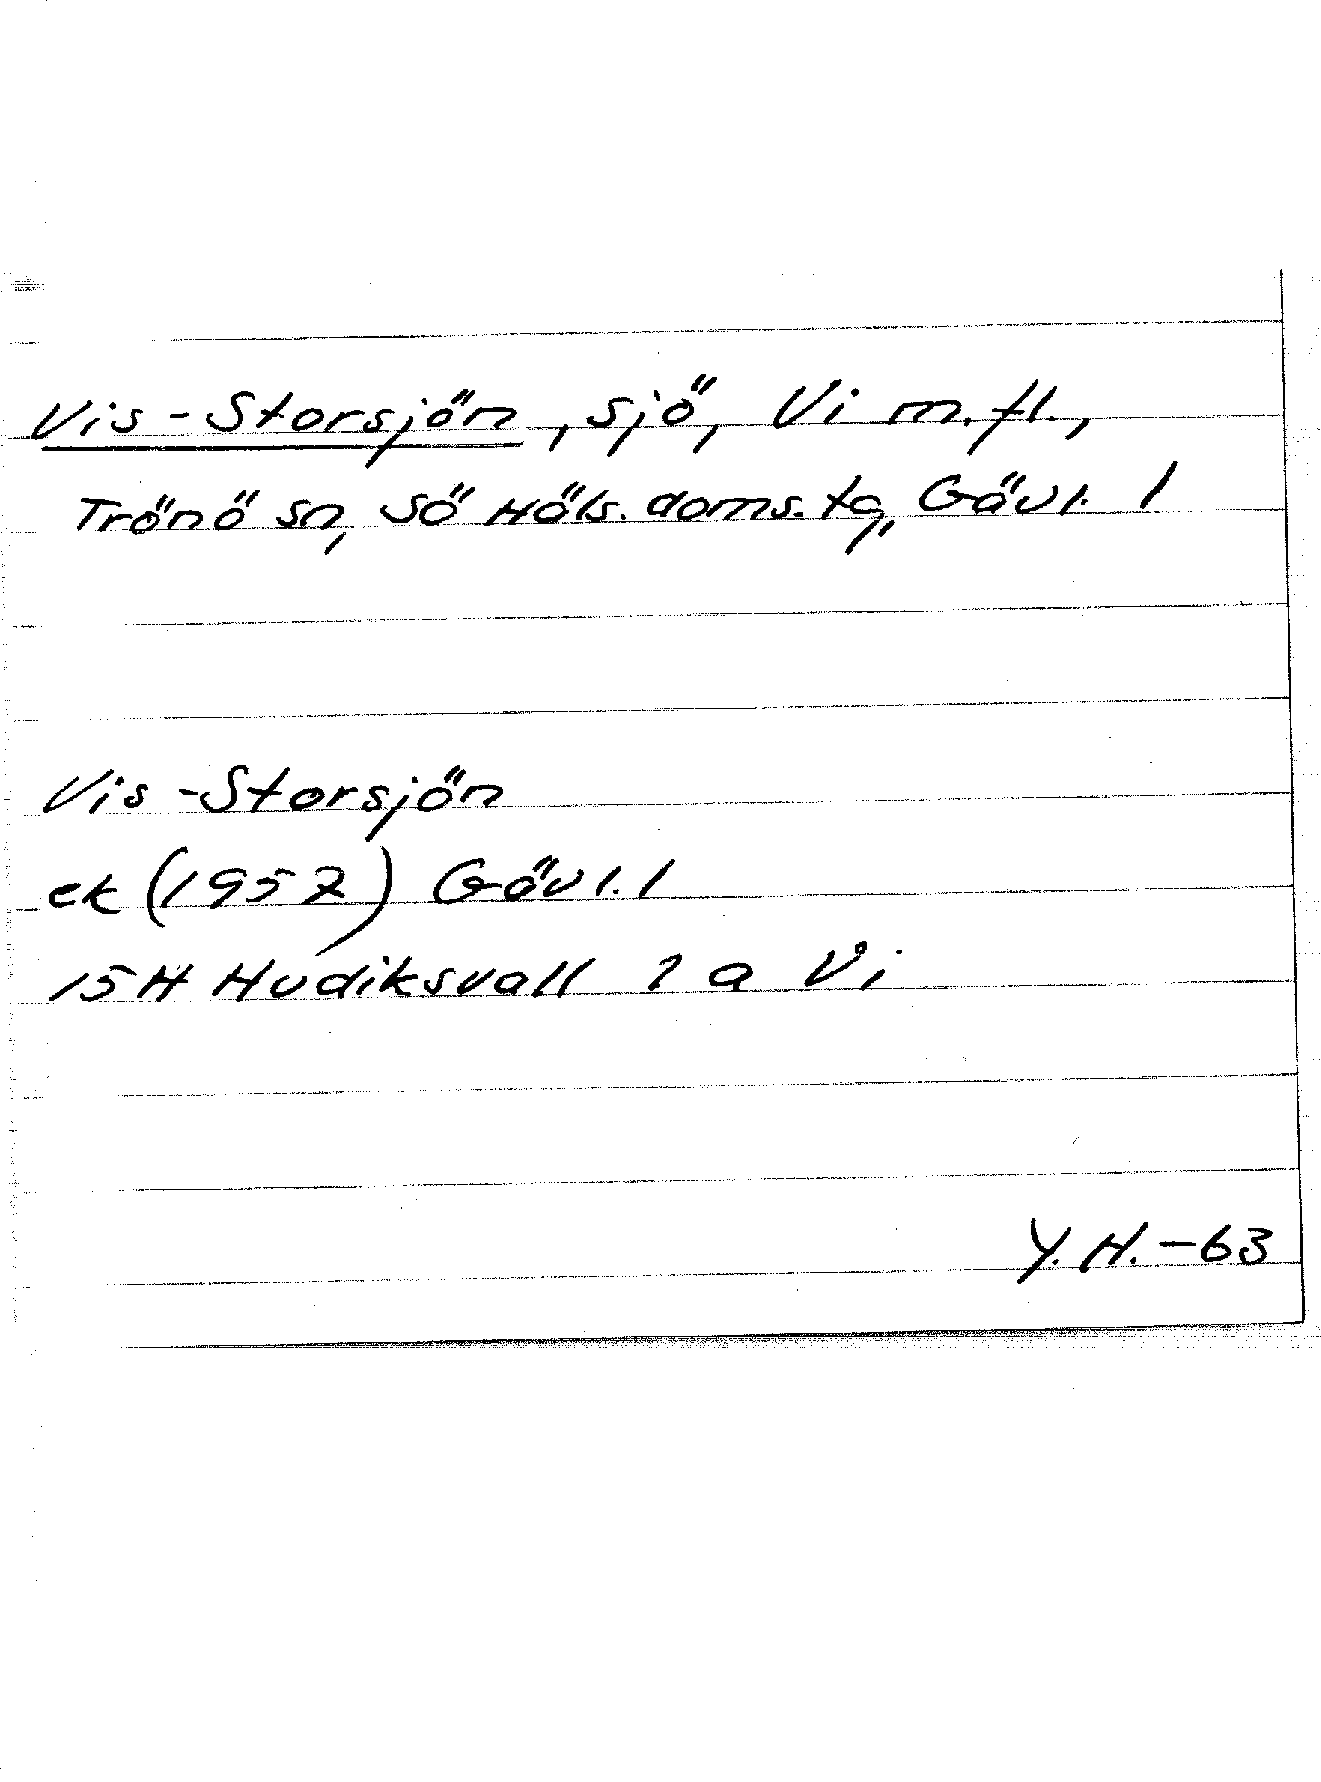 Vis-Storsjön, sjö, Vi m.fl.,
Trönö sn, Sö Häls. doms. tg, Gävl. l
Vis-Storsjön
ek (1957) Gävl. l
15H Hudiksvall 1 a Vi
Y.H.-63